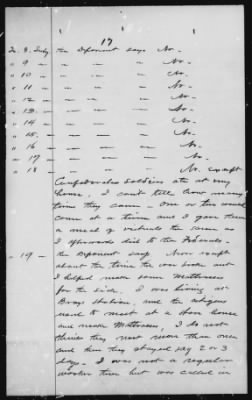 17
To 8. July the Deponent says No.
" 9 — — — — No.
" 10 — — — — No.
" 11 — — — — No.
" 12 — — — — No.
" 13 — — — — No.
" 14 — — — — No.
" 15. — — — — No.
" 16 — — — — No.
" 17 — — — — No.
" 18 — — — — No. except
Confederate soldiers ate at my
house, I can't tell how many
times they came - one or two would
come at a time and I gave them
a meal of victuals the same as
I afterwards did to the Federals.
" 19 — the Deponent says Nor except
about the time the war broke out
I helped make some Mattresses
for the sick. I was living at
Station, and the citizens
used to meet at a store house
and make Mattresses, I do not
think they met more than once
and then they stayed say 2 or 3
days. I was not a regular
worker then but was called in